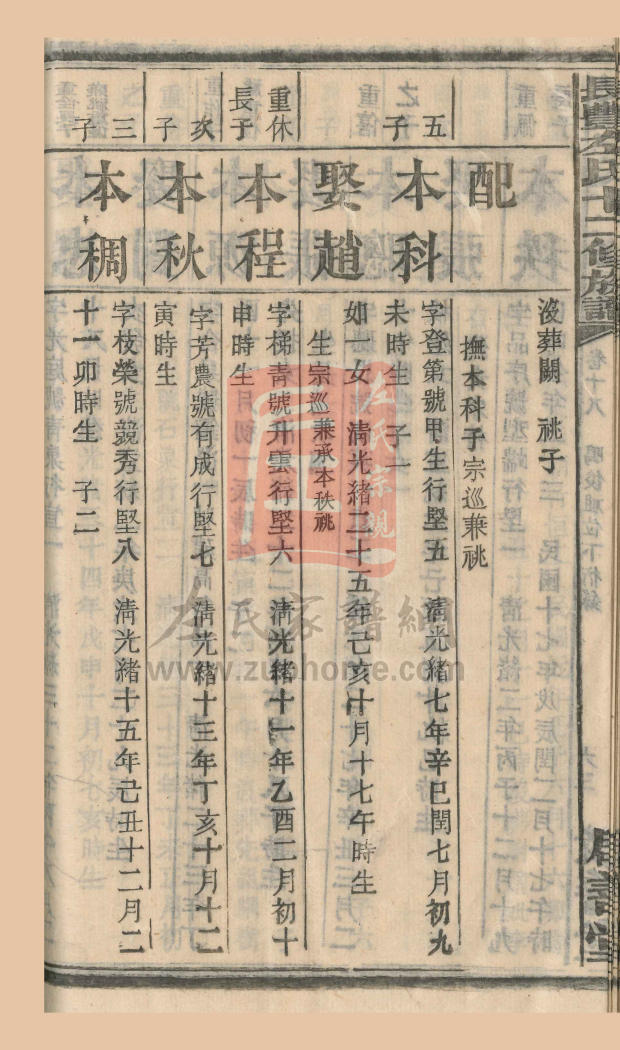 長豐左氏十二修族譜
卷十八
配
沒葬闕 祧子三 民國十七年戊辰閏二月十七午時
撫本科子宗巡兼祧
五子
本科
字登第號甲生行堅五 清光緒七年辛巳閏七月初九
未時生 子一
娶趙
如一女 清光緒二十五年己亥十月十七午時生
生宗巡兼承本秩祧
重休長子
本程
字梯青號升雲行堅六 清光緒十一年乙酉二月初十
申時生
次子
本秋
字芳農號有成行堅七 清光緒十三年丁亥十月十二
寅時生
三子
本稠
字枝榮號競秀行堅八 清光緒十五年己丑十二月二
十一卯時生 子二
左氏宗親
左氏家譜網
www.zuohome.com